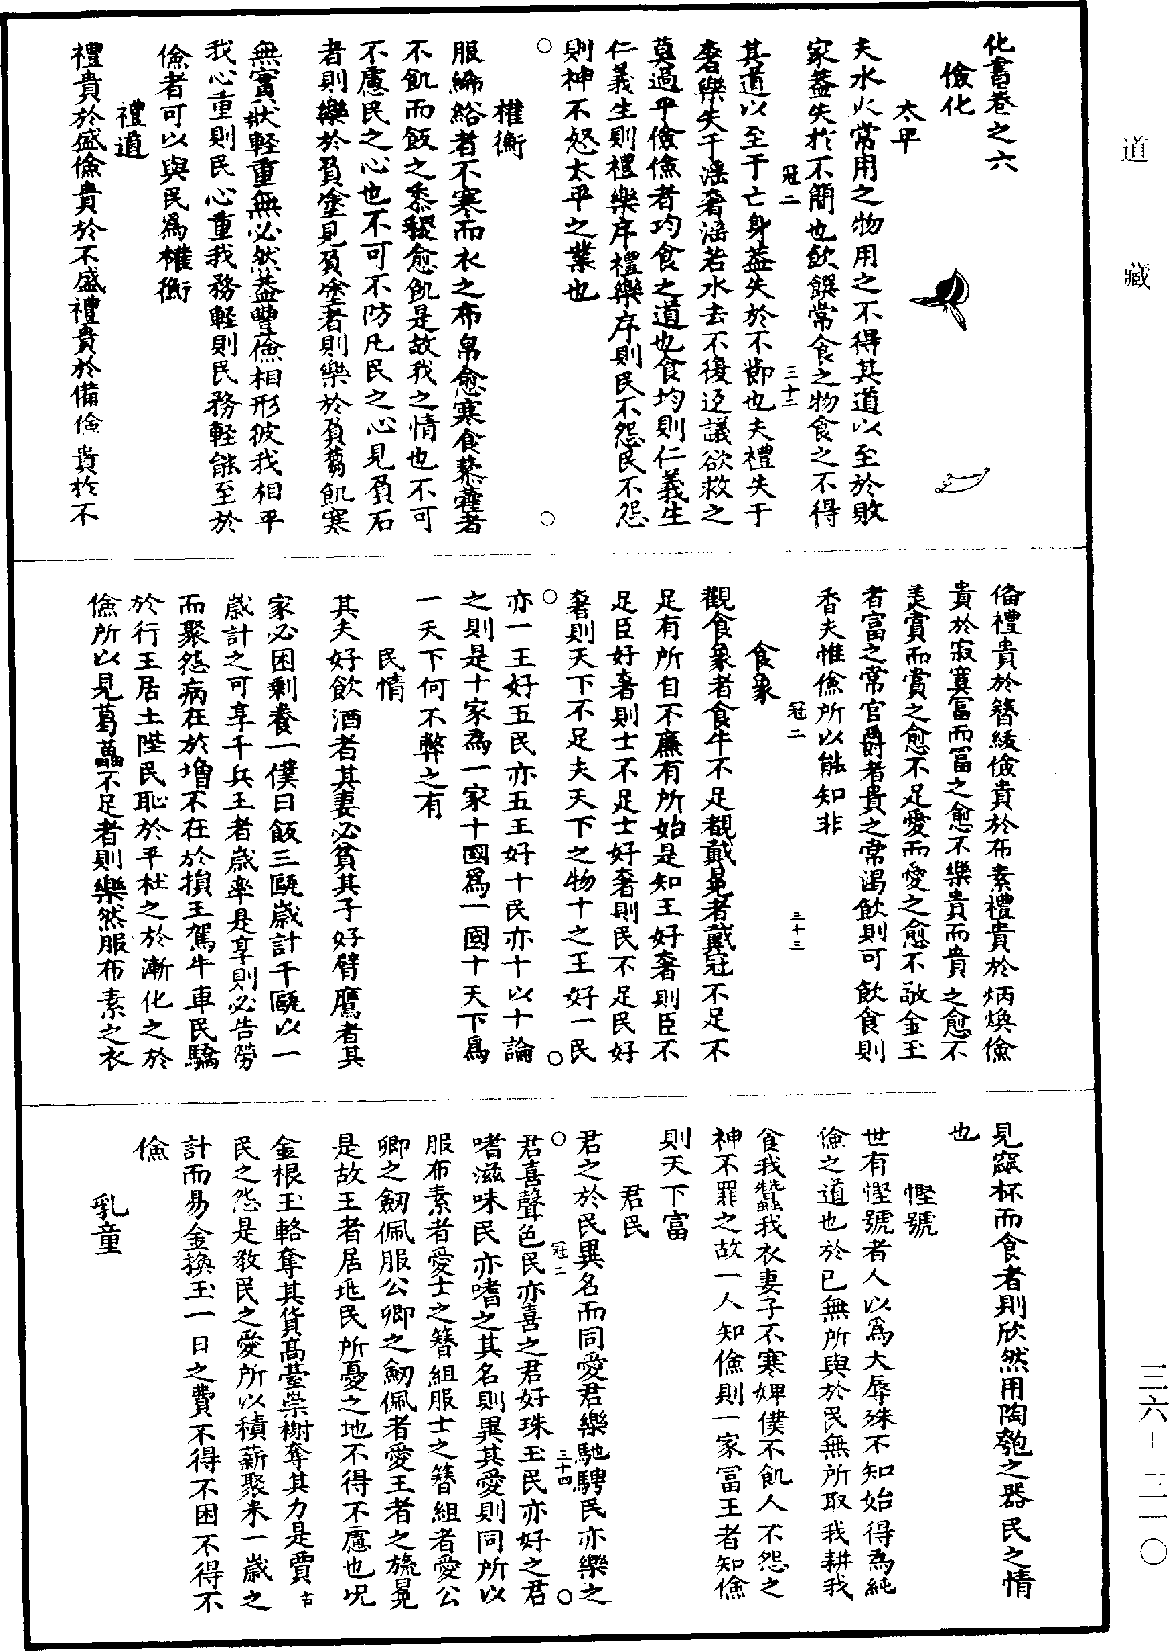 道藏
三六－二一〇
化書卷之六
儉化
太平
夫水火常用之物用之不得其道以至於敗
家蓋失於不簡也飲饌常食之物食之不得
冠二
三十二
其道以至于亡身蓋失於不節也夫禮失于
奢樂失于淫奢淫若水去不復返議欲救之
莫過乎儉儉者均食之道也食均則仁義生
仁義生則禮樂序禮樂序則民不怨民不怨
則神不怒太平之業也
權衡
服絺綌者不寒而衣之布帛愈寒食藜藿者
不飢而飯之黍稷愈飢是故我之情也不可
不慮民之心也不可不防凡民之心見負石
者則樂於負塗見負塗者則樂於負芻飢寒
無實狀輕重無必然蓋豐儉相形彼我相平
我心重則民心重我務輕則民務輕能至於
儉者可以與民爲權衡
禮道
禮貴於盛儉貴於不盛禮貴於備儉貴於不
備禮貴於簪紱儉貴於布素禮貴於炳煥儉
貴於寂寞富而富之愈不樂貴而貴之愈不
美賞而賞之愈不足愛而愛之愈不敬金玉
者富之常官爵者貴之常渴飲則可飲食則
香夫惟儉所以能知非
冠二
三十三
食象
觀食象者食牛不足覩戴冕者戴冠不足不
足有所自不廉有所始是知王好奢則臣不
足臣好奢則士不足士好奢則民不足民好
奢則天下不足夫天下之物十之王好一民
亦一王好五民亦五王好十民亦十以十論
之則是十家爲一家十國爲一國十天下爲
一天下何不弊之有
民情
其夫好飲酒者其妻必貧其子好臂鷹者其
家必困剩養一僕日飯三甌歲計千甌以一
歲計之可享千兵王者歲率是享則必告勞
而聚怨病在於增不在於損王駕牛車民驕
於行王居土陛民恥於平杜之於漸化之於
儉所以見葛藟不足者則樂然服布素之衣
見窳杯而食者則欣然用陶匏之器民之情
也
慳號
世有慳號者人以爲大辱殊不知始得爲純
儉之道也於己無所與於民無所取我耕我
食我蠶我衣妻子不寒婢僕不飢人不怨之
神不罪之故一人知儉則一家富王者知儉
則天下富
君民
君之於民異名而同愛君樂馳騁民亦樂之
冠二
三十四
君喜聲色民亦喜之君好珠玉民亦好之君
嗜滋味民亦嗜之其名則異其愛則同所以
服布素者愛士之簪組服士之簪組者愛公
卿之劒佩服公卿之劒佩者愛王者之旒冕
是故王者居兆民所憂之地不得不慮也况
金根玉輅奪其貨高臺崇榭奪其力是賈
民之怨是教民之愛所以積薪聚米一歲之
計而易金換玉一日之費不得不困不得不
儉
乳童